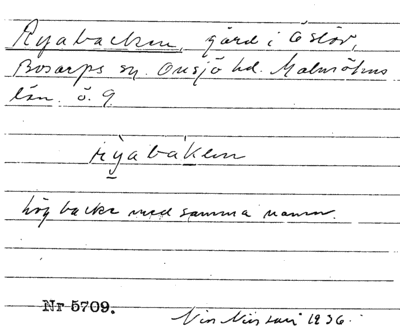 Ryabacken, gård i Öslöv,
Bosarps sn. Onsjö hd. Malmöhus
län. ö. 9
ri̊yabaken
hög backe med samma namn.
Nr 5709.
Nils Nilsson 1936.